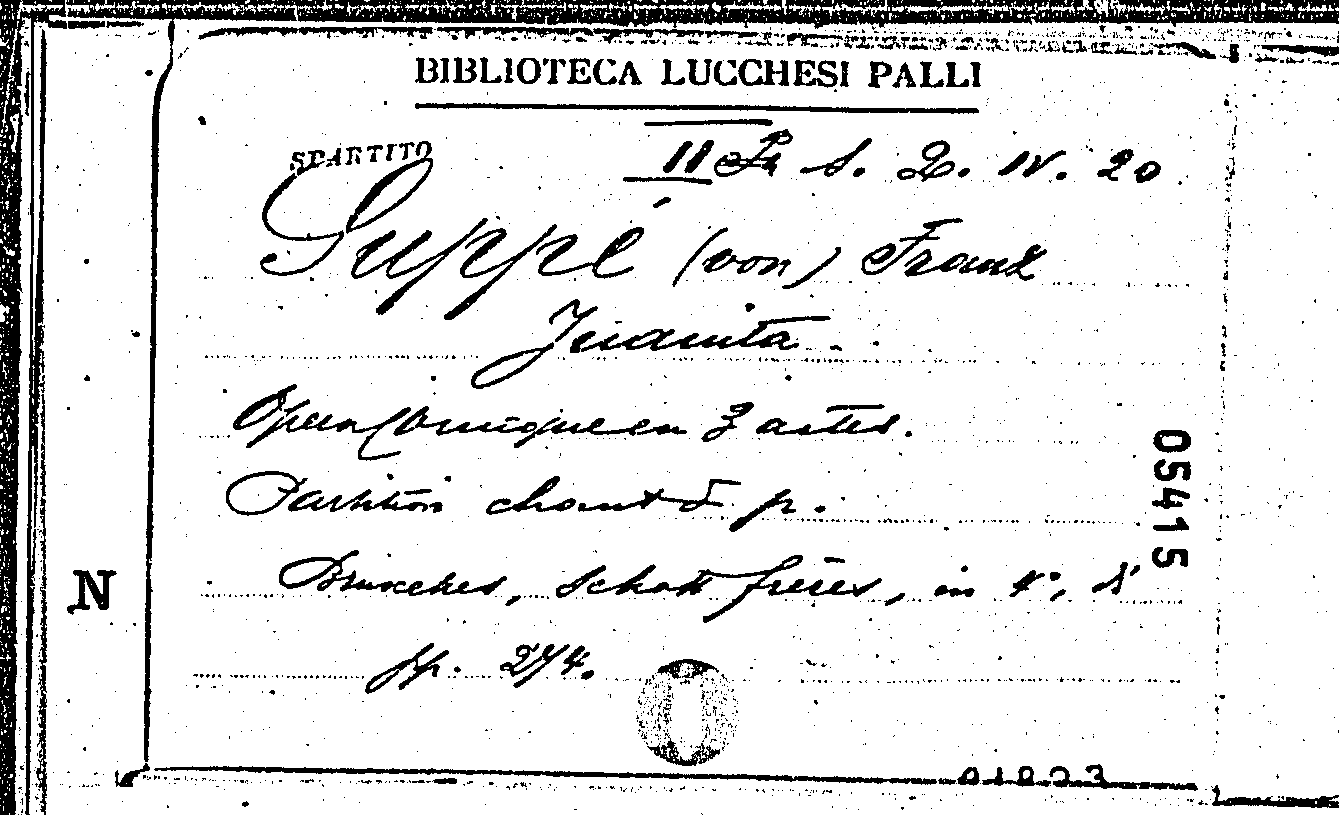 BIBLIOTECA LUCCHESI PALLI
SPARTITO
II s. 2. IV. 20
Suppé (von) Franz
Juanita
Opera Comique en 3 actes.
Partition chant & p.
05415
Bruxelles, Schott frères, in 4°, di
N
pp. 274.